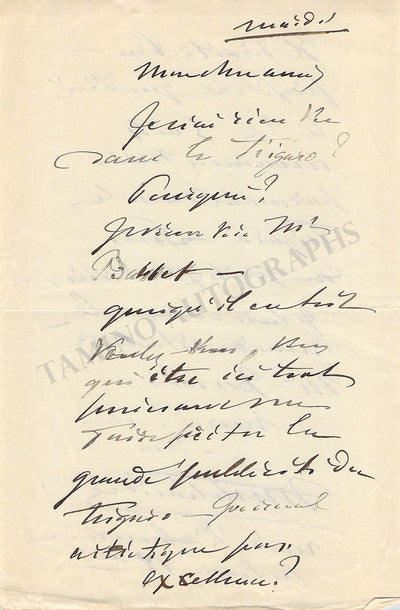 mardi
Mon cher ami,
Je n'ai rien vu
dans le Figaro?
Pourquoi?
Je viens voir Mr
quoiqu'il en soit
Voulez-vous, vous
qui êtes ici tout
faire profiter la
grande publicité du
Figaro - Journal
artistique par
excellence?
TAMINO AUTOGRAPHS